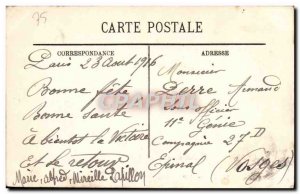 75
CARTE POSTALE
CORRESPONDANCE
ADRESSE
Paris 28 Aout 1916
Bonne fête
Bonne Santé
A bientot la Victoire
Et de retour
Marie, Alfred, Mireille Papillon
Monsieur
Pierre Armand
Sous officier
11e Génie
Compagnie 27 D
Epinal (Vosges)